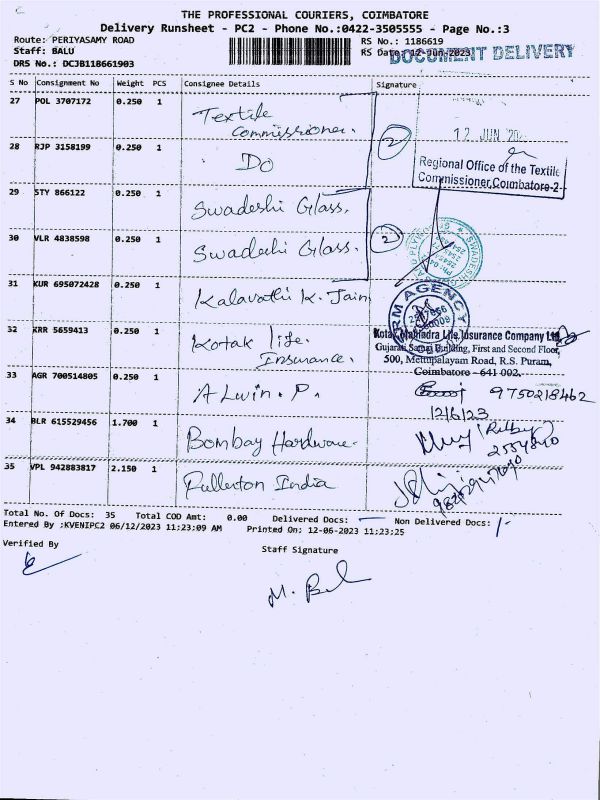 THE PROFESSIONAL COURIERS, COIMBATORE
Delivery Runsheet - PC2 - Phone No.:0422-3505555 - Page No.:3
Route: PERIYASAMY ROAD RS No.: 1186619
Staff: BALU RS Date: 12-Jun-2023 DOCUMENT DELIVERY
DRS No.: DCJB118661903
S No Consignment No Weight PCS Consignee Details Signature
27 POL 3707172 0.250 1 Textile Commissioner.
12 JUN 20
28 RJP 3158199 0.250 1 Do 2
Regional Office of the Textile
Commissioner, Coimbatore-2
29 STY 866122 0.250 1 Swadeshi Glass.
30 VLR 4838598 0.250 1 Swadeshi Glass. 2
31 KUR 695072428 0.250 1 Kalavathi K. Jain
RM AGENCY
32 KRR 5659413 0.250 1 Kotak life. Insurance.
Kotak Mahindra Life Insurance Company Ltd
Gujarati Samaj Building, First and Second Floor,
500, Mettupalayam Road, R.S. Puram,
Coimbatore - 641 002.
33 AGR 700514805 0.250 1 Alwin. P. 9750218462
12/6/23
34 BLR 615529456 1.700 1 Bombay Hardware.
35 VPL 942883817 2.150 1 Fullerton India
Total No. Of Docs: 35 Total COD Amt: 0.00 Delivered Docs: — Non Delivered Docs: /-
Entered By :KVENIPC2 06/12/2023 11:23:09 AM Printed On: 12-06-2023 11:23:25
Verified By Staff Signature